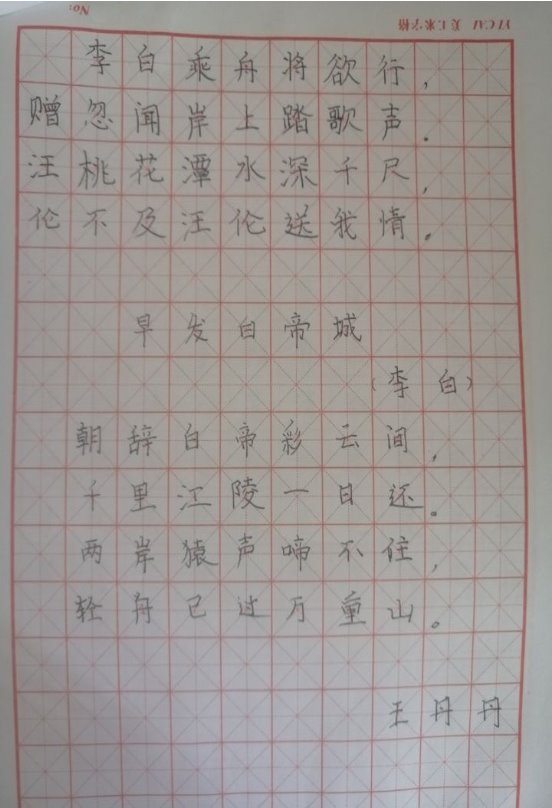 No:
美工米字格
赠汪伦
李白乘舟将欲行,
忽闻岸上踏歌声.
桃花潭水深千尺,
不及汪伦送我情。
早发白帝城
(李白)
朝辞白帝彩云间,
千里江陵一日还。
两岸猿声啼不住,
轻舟已过万重山。
王丹丹